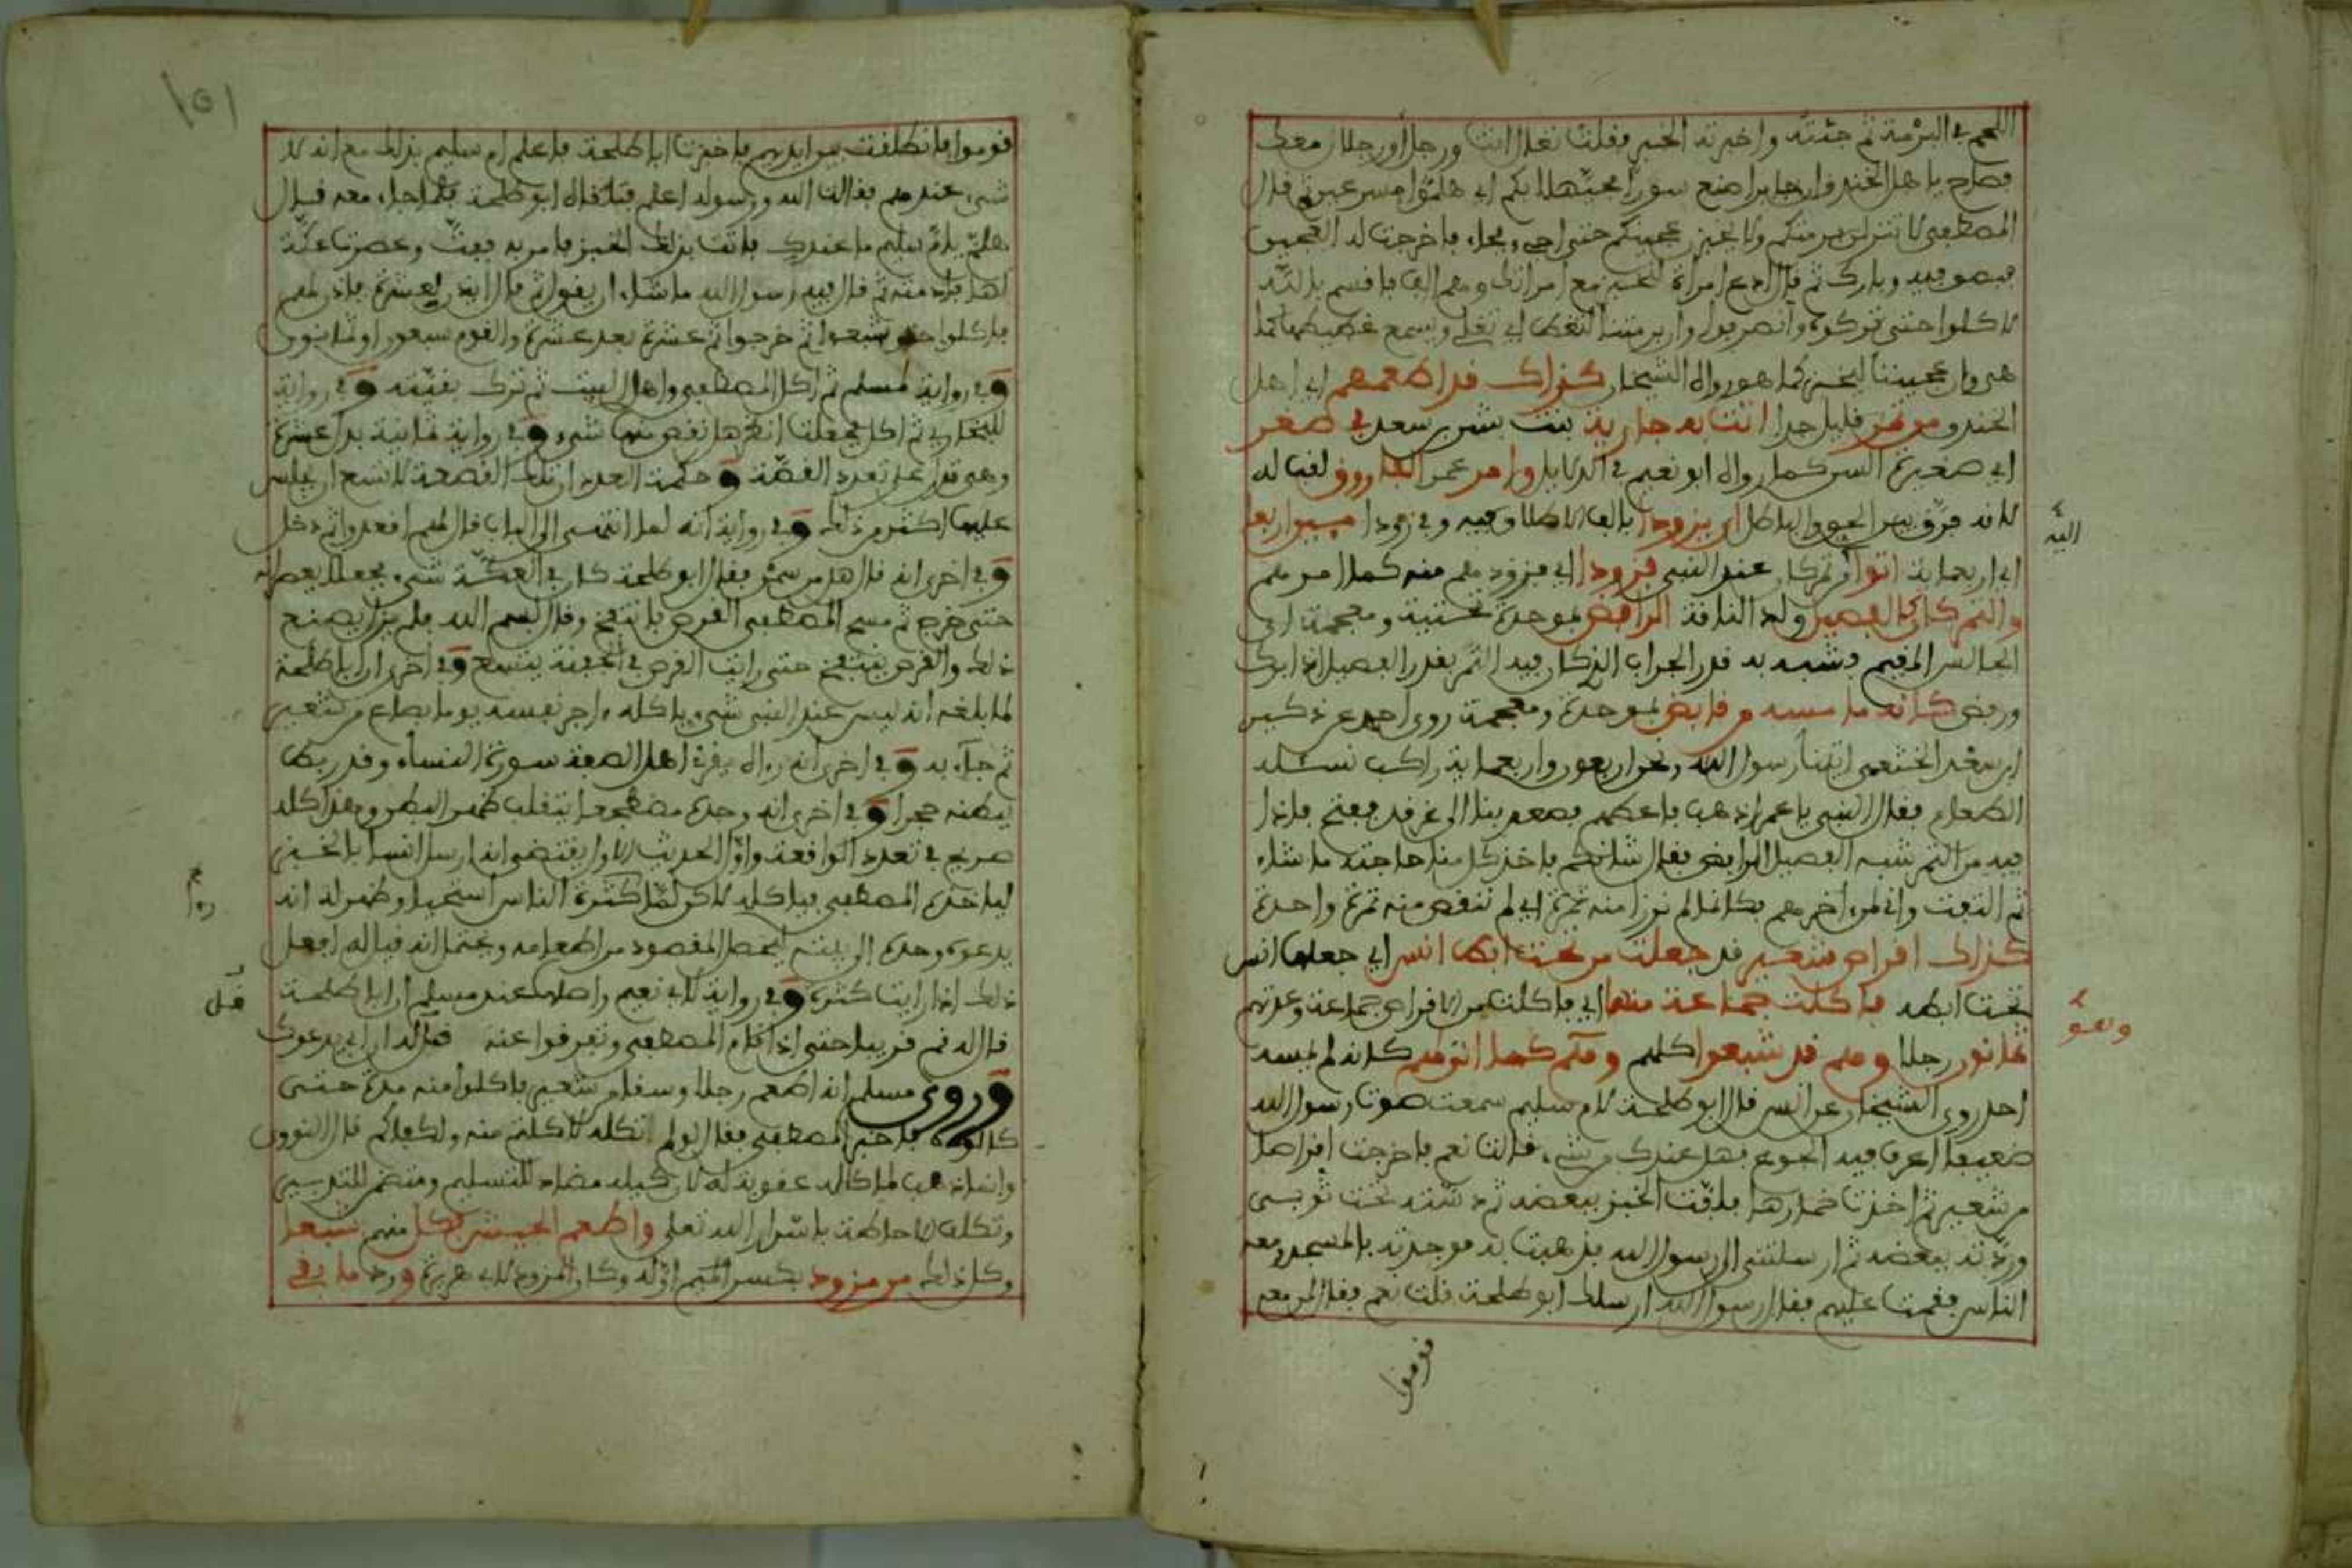 اللحم في البرمة ثم جئته واخبرته الخبر فقلت تعال انت ورجل أو رجلان معك
فصاح يا هل الخندق ان جابرا صنع سورا فحيهلا بكم اي هلموا مسرعين ثم قال
المصطفى لا تنزلن برمتكم ولا تخبزن عجينكم حتى اجيء فجاء فاخرجت له العجين
فبصق فيه وبارك ثم قال ادع امراة لتخبز مع امراتك وهم الف فاقسم بالله
لاكلوا حتى تركوه وانصرفوا وان برمتنا لتغط اي تغلي ويسمع غطيطها كما
هي وان عجيننا ليخبز كما هو رواه الشيخان كذاك قد اطعمهم اي اهل
الخندق من تمر قليل جدا اتت به جارية بنت بشر بن سعد في صغر
اي صغيرة السن كما رواه ابو نعيم في الدلايل وامر عمر الفاروق لقب له
لانه فرق بين الحق والباطل ان يزودا بالف الاطلاق فيه وفي زودا ميين اربعا
اي اربعماية اتوا من تمر كان عند النبي فزودا اي فزودهم منه كما امرهم
والتمر كان كالفصيل ولد الناقة الرابض بموحدة تحتية ومعجمة اي
الجالس المقيم وشبه به قدر الجراب الذي كان فيه التمر بقدر الفصيل اذا برك
وربض كانه ما مسه من قابض بموحدة ومعجمة روى احمد عن دكين
ابن سعيد الخثعمي اتينا رسول الله ونحن اربعون واربعماية راكب نسئله
الطعام فقال النبي يا عمر اذهب فاعطهم فصعد بنا الى غرفة ففتح فاذا
فيه من التمر شبه الفصيل الرابض فقال شانكم فاخذ كل منا حاجته ما شاء
ثم التفت واني لمن اخرهم فكانما لم نرزا منه تمرة اي لم ننقص منه تمرة واحدة
كذاك اقراص شعير قد جعلت من تحت ابط انس اي جعلها انس
تحت ابطه فاكلت جماعة منها اي فاكلت من الاقراص جماعة وعدتهم
ثمانون رجلا وهم قد شبعوا كلهم وهم كما اتوهم كانه لم يمسه
احد روى الشيخان عن انس قال ابو طلحة لام سليم سمعت صوت رسول الله
ضعيفا اعرف فيه الجوع فهل عندك من شيء قالت نعم فاخرجت اقراصا
من شعير ثم اخذت خمارها فلفت الخبز ببعضه ثم دسته تحت ثوبي
وردته ببعضه ثم ارسلتني الى رسول الله فذهبت به فوجدته بالمسجد ومعه
الناس فقمت عليهم فقال رسول الله ارسلك ابو طلحة قلت نعم فقال لمن معه
اليه
وهو
قوموا
١٥١
قوموا فانطلقت بين ايديهم فاخبرت ابا طلحة فاعلم ام سليم بذلك مع انه لا
شيء عندهم فقالت الله ورسوله اعلم فتلقاه ابو طلحة فلما جاء معه قال
هلمي يا ام سليم ما عندك فاتت بذلك الخبز فامر به ففت وعصرت عكة
لها فادمته ثم قال فيه رسول الله ما شاء ان يقول ثم قال ايذن لعشرة فاذن لهم
فاكلوا حتى شبعوا ثم خرجوا ثم عشرة بعد عشرة والقوم سبعون او ثمانون
وفي رواية لمسلم ثم اكل المصطفى واهل البيت ثم ترك بقيته وفي رواية
للبخاري ثم اكل فجعلت انظر هل نقص منها شيء وفي رواية ثمانية بدل عشرة
وهي تدل على تعدد القصة وحكمة العدد ان تلك القصعة لا تسع ان يجلس
عليها اكثر من ذلك وفي رواية انه لما انتهى الى الباب قال لهم اقعدوا ثم دخل
وفي اخرى انه قال هل من سمن فقال ابو طلحة كان في العكة شيء فجعلا يعصرانه
حتى خرج ثم مسح المصطفى القرص فانتفخ وقال بسم الله فلم يزل يصنع
ذلك والقرص ينتفخ حتى رايت القرص في الجفنة يتسع وفي اخرى ان ابا طلحة
لما بلغه انه ليس عند النبي شيء ياكله اجر نفسه يوما بصاع من شعير
ثم جاء به وفي اخرى انه راه يقرئ اهل الصفة سورة النساء وقد ربط
ببطنه حجرا وفي اخرى انه وجده مضطجعا يتقلب ظهر البطن وهذا كله
صريح في تعدد الواقعة واول الحديث الاول يقتضي انه ارسل انسا بالخبز
لياخذه المصطفى فياكله لاكن لما كثرة الناس استحيا وظهر له انه
يدعوه وحده الى بيته ليحصل المقصود من اطعامه ويحتمل انه قيل له افعل
ذلك اذا رايت كثرة وفي رواية لابي نعيم واصلها عند مسلم ان ابا طلحة
قال له قم قريبا حتى اذا قام المصطفى وتفرقوا عنه قل له ان ابي يدعوك
وروى مسلم انه اطعم رجلا وسقا من شعير فاكلوا منه مدة حتى
كالوه فاخبر المصطفى فقال لو لم تكله لاكلتم منه ولكفاكم قال النووي
وانما ذهب لما كاله عقوبة له لان كيله مضاد للتسليم ومتضمن للتدبير
وتكلف الاحاطة باسرار الله تعلى واطعم الجيش فكل منهم شبعا
وكل ذلك من مزود بكسر الميم اوله وكان المزود لابي هريرة ورد ما بقي
قل